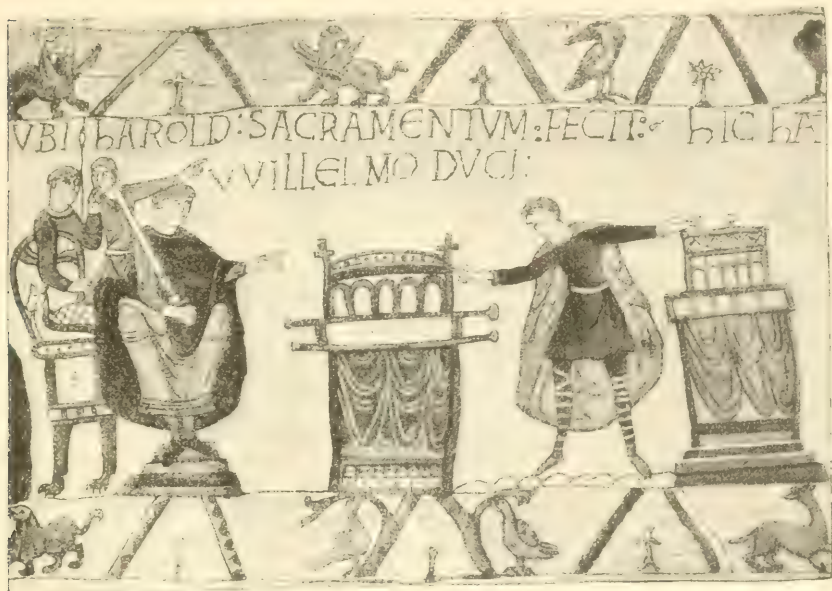 VBI hAROLD:SACRAMENTVM:FECIT: hIC hA
VVILLELMO DVCI: